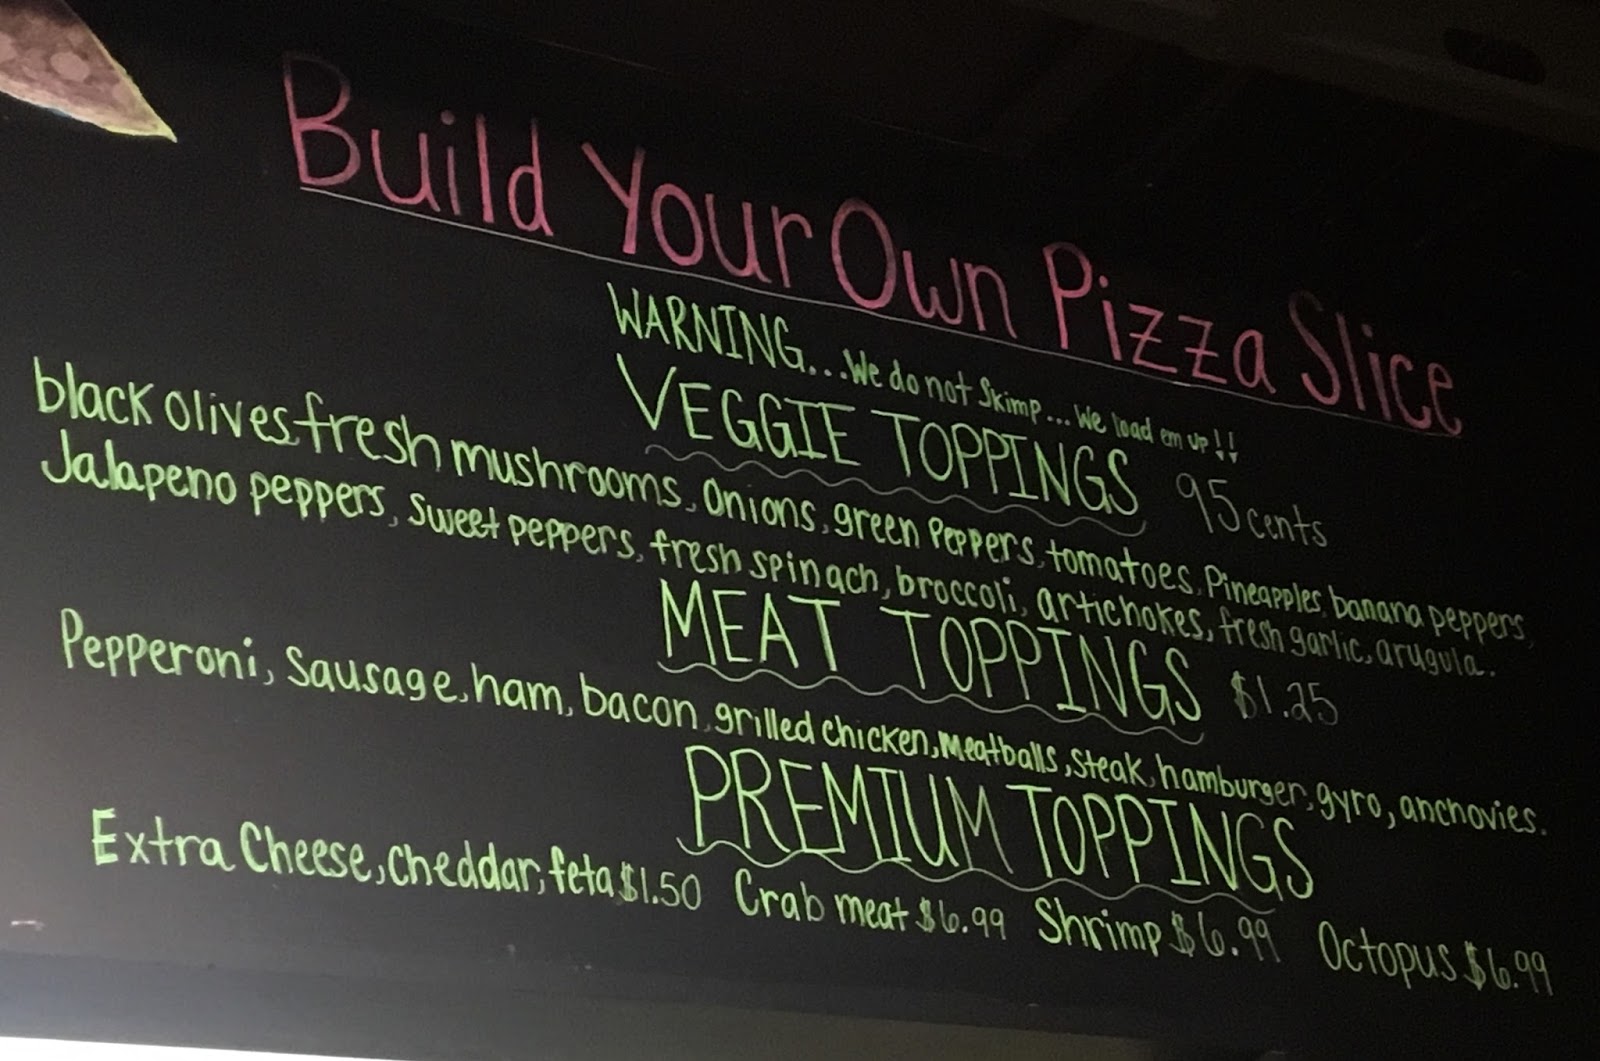 Build Your Own Pizza Slice
WARNING...We do not Skimp...We load em up!!
VEGGIE TOPPINGS 95 cents
black olives, fresh mushrooms, Onions, green Peppers, tomatoes, Pineapples, banana peppers,
Jalapeno peppers, Sweet peppers, fresh spinach, broccoli, artichokes, fresh garlic, arugula.
MEAT TOPPINGS $1.25
Pepperoni, Sausage, ham, bacon, grilled chicken, Meatballs, Steak, hamburger, gyro, anchovies.
PREMIUM TOPPINGS
Extra Cheese, cheddar, feta $1.50 Crab meat $6.99 Shrimp $6.99 Octopus $6.99